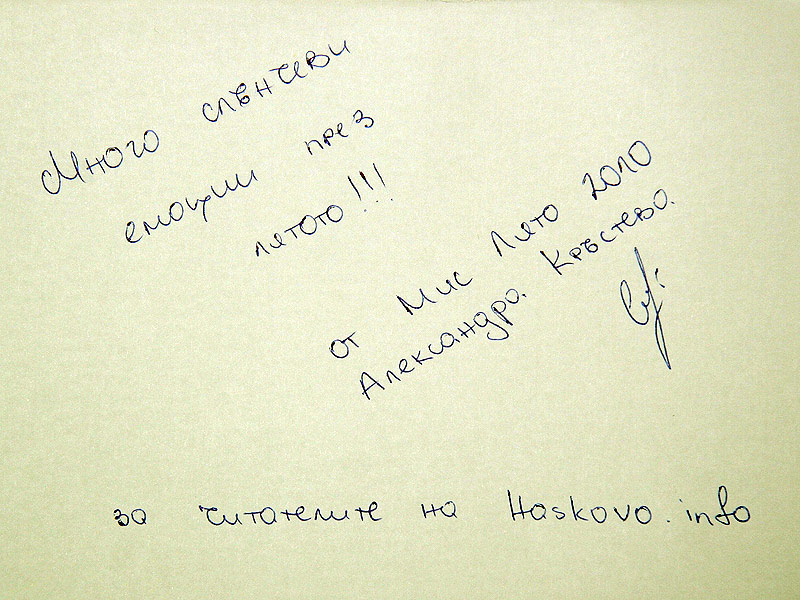 Много слънчеви
емоции през
лятото!!!
от Мис Лято 2010
Александра Кръстева
за читателите на Haskovo.info